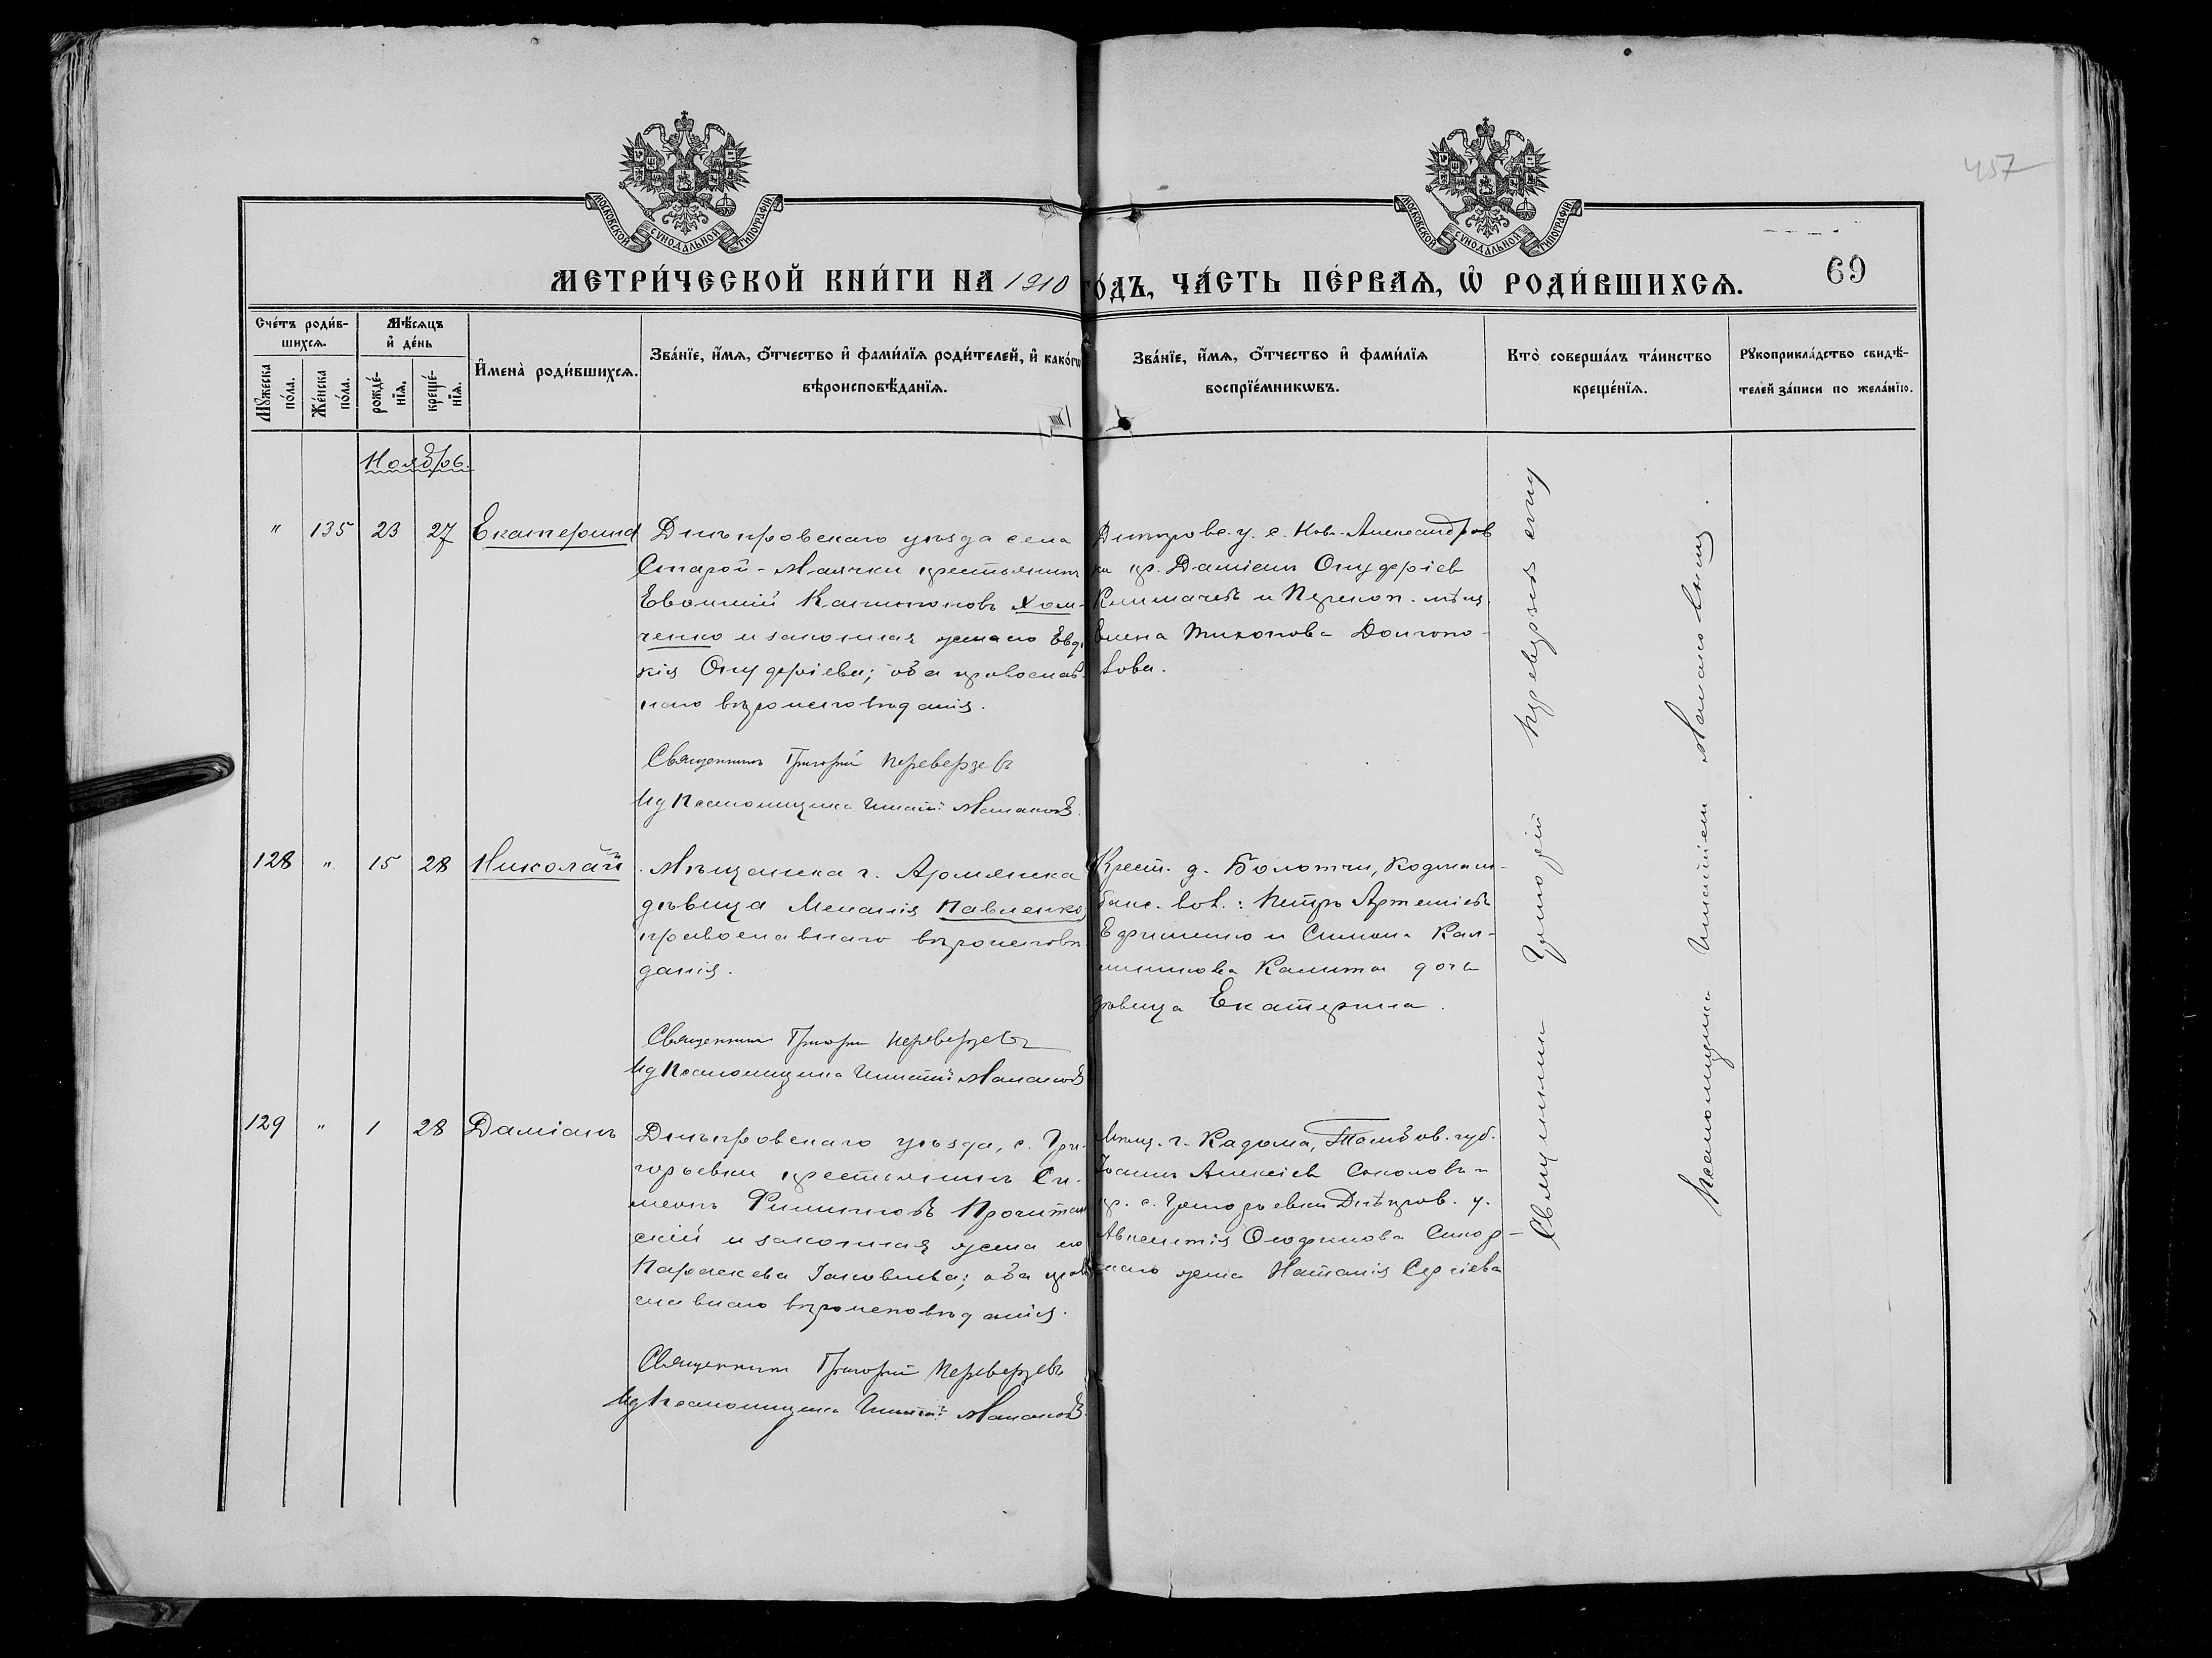 457
МОСКОВСКОЙ СѴНОДАЛЬНОЙ ТИПОГРАФІИ
МОСКОВСКОЙ СѴНОДАЛЬНОЙ ТИПОГРАФІИ
МЕТРИ́ЧЕСКОЙ КНИ́ГИ НА 1910 ГО́ДЪ, ЧА́СТЬ ПЕ́РВАѦ, Ѡ҆ РОДИ́ВШИХСѦ.
69
Сче́тъ роди́в-
шихсѧ.
Мꙋ́жеска по́ла.
Же́нска по́ла.
Мѣ́сѧцъ
и҆ де́нь
рожде́-
нїѧ.
креще́-
нїѧ.
И҆мена̀ роди́вшихсѧ.
Зва́нїе, и҆́мѧ, ѻ҆́тчество и҆ фами́лїѧ роди́телей, и҆ како́гѡ
вѣроисповѣ́данїѧ.
Зва́нїе, и҆́мѧ, ѻ҆́тчество и҆ фами́лїѧ
воспрїе́мникѡвъ.
Кто̀ соверша́лъ та́инство
креще́нїѧ.
Рꙋкоприкла́дство свидѣ́-
телей за́писи по жела́нїю.
Ноябрь.
" 135 23 27 Екатерина
Днѣпровскаго уѣзда села
Старой-Маячки крестьянинъ
Евѳимій Капитоновъ Хом-
ченко и законная жена его Евдо
кія Онуфріева; оба православ
наго вѣроисповѣданія.
Священникъ Григорій Переверзевъ
Ид Псаломщика Игнатій Маланов
Днѣпровс. у. с. Нов. Александров
ки кр. Даміанъ Онуфріев
Климачевъ и Перекоп. мѣщ.
Елена Тихонова Долгопо-
лова.
128 " 15 28 Николай
Мѣщанка г. Армянска
дѣвица Меланія Павленко
православнаго вѣроисповѣ
данія.
Священникъ Григорій Переверзевъ
Ид Псаломщика Игнатій Маланов
Крест. д. Болотчи,
вол.: Петръ Артеміевъ
Ефименко и Симона Кал-
дочь
дѣвица Екатерина.
129 " 1 28 Даміанъ
Днѣпровскаго уѣзда, с. Гри-
горьевки крестьянинъ Си-
меонъ Филипповъ
скій и законная жена его
Параскева Іаковлева; оба право
славнаго вѣроисповѣданія.
Священникъ Григорій Переверзевъ
Ид Псаломщика Игнатій Маланов
Мѣщ. г. Кадома, Тамбов. губ.
Іоаннъ Алексіев Соколовъ и
кр. с. Григорьевки Днѣпров. у.
Авксентія
жена Наталія Сергіева
Священникъ Григорій Переверзевъ
Псаломщика Игнатій